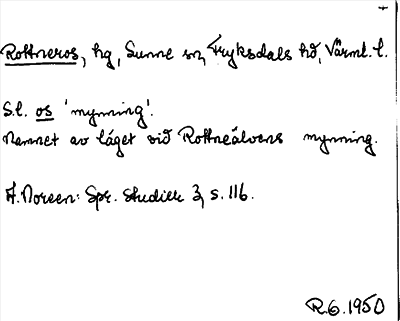 Rottneros, hg, Sunne sn, Fryksdals hd, Värml. l.
S.l. os 'mynning'.
Namnet av läget vid Rottneälvens mynning.
A. Noreen: Spr. studier 3, s. 116.
R.G. 1950